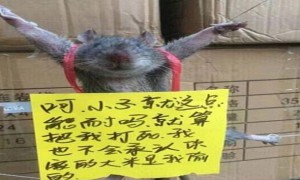 呵,小子就这点
能耐吗,就算
把我打死,我
也不会承认你
家的大米是我偷
的.